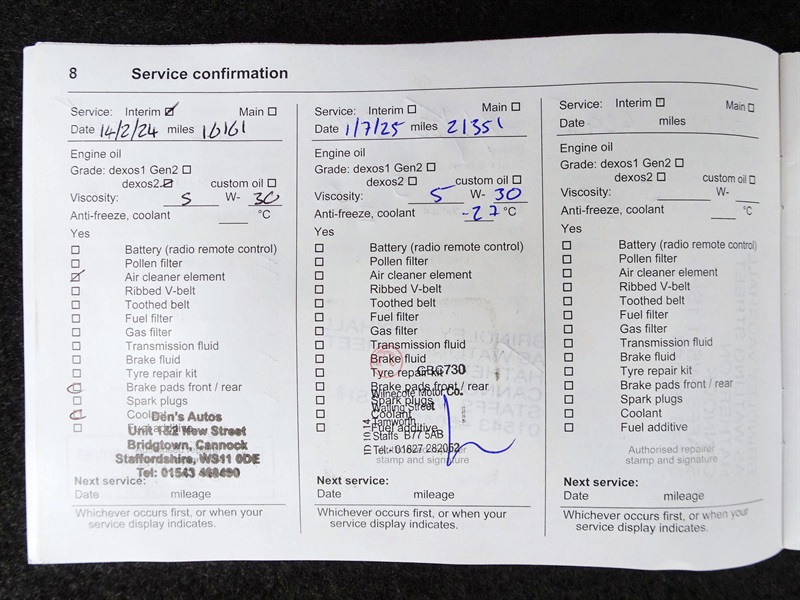 8 Service confirmation
Service: Interim Main
Date 14/2/24 miles 16161
Engine oil
Grade: dexos1 Gen2
dexos2 custom oil
Viscosity: 5 W- 30
Anti-freeze, coolant °C
Yes
Battery (radio remote control)
Pollen filter
Air cleaner element
Ribbed V-belt
Toothed belt
Fuel filter
Gas filter
Transmission fluid
Brake fluid
Tyre repair kit
Brake pads front / rear
Spark plugs
Coolant
Den's Autos
Unit 1 82 New Street
Bridgtown, Cannock
Staffordshire, WS11 0DE
Tel: 01543
Next service:
Date mileage
Whichever occurs first, or when your
service display indicates.
Service: Interim Main
Date 1/7/25 miles 21351
Engine oil
Grade: dexos1 Gen2
dexos2 custom oil
Viscosity: 5 W- 30
Anti-freeze, coolant -27 °C
Yes
Battery (radio remote control)
Pollen filter
Air cleaner element
Ribbed V-belt
Toothed belt
Fuel filter
Gas filter
Transmission fluid
Brake fluid
Tyre repair kit
GBG730
Brake pads front / rear
Wilnecote Motor Co.
Spark plugs
Watling Street
Coolant
Tamworth
Fuel additive
Staffs B77 5AB
Tel:- 01827 282052
stamp and signature
Next service:
Date mileage
Whichever occurs first, or when your
service display indicates.
Service: Interim Main
Date miles
Engine oil
Grade: dexos1 Gen2
dexos2 custom oil
Viscosity: W-
Anti-freeze, coolant °C
Yes
Battery (radio remote control)
Pollen filter
Air cleaner element
Ribbed V-belt
Toothed belt
Fuel filter
Gas filter
Transmission fluid
Brake fluid
Tyre repair kit
Brake pads front / rear
Spark plugs
Coolant
Fuel additive
Authorised repairer
stamp and signature
Next service:
Date mileage
Whichever occurs first, or when your
service display indicates.